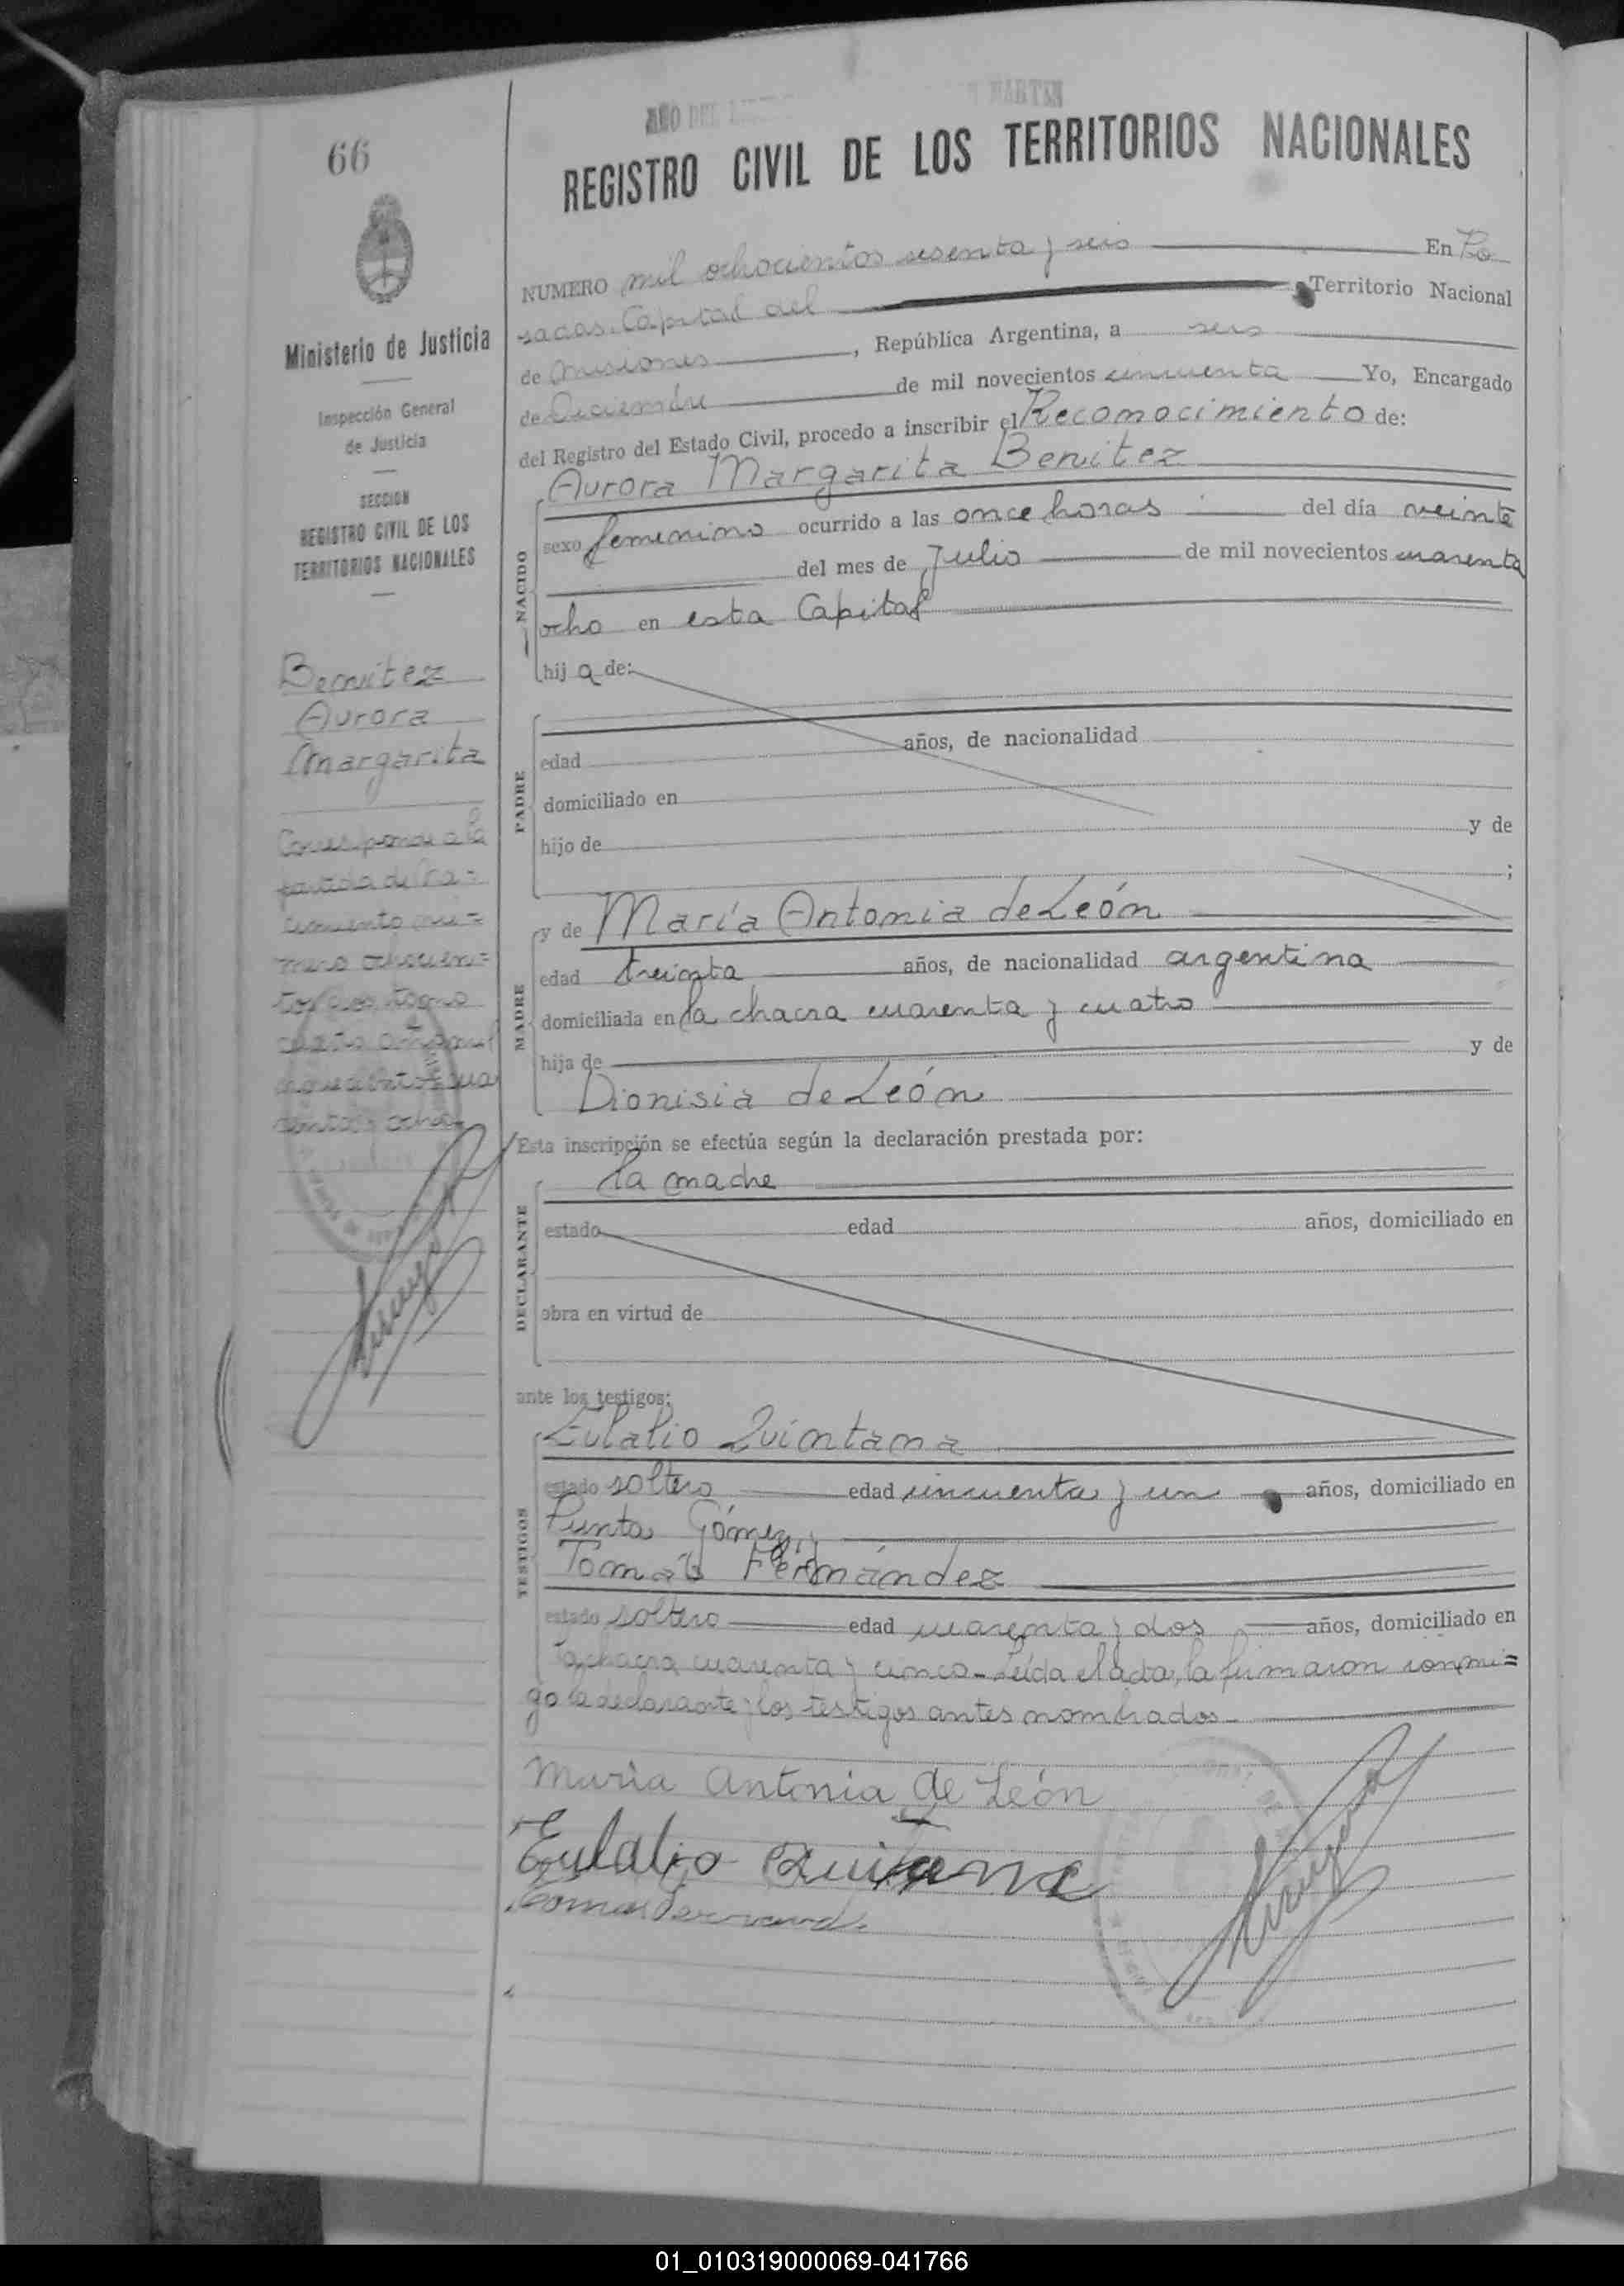 66
AÑO DEL MARTIN
REGISTRO CIVIL DE LOS TERRITORIOS NACIONALES
Ministerio de Justicia
Inspección General
de Justicia
SECCION
REGISTRO CIVIL DE LOS
TERRITORIOS NACIONALES
Benitez
Aurora
Margarita
Corresponde a la
partida de Na=
cimiento nú=
mero ochocien=
tos dos, tomo
año mil
novecientos cua
renta y ocho
NUMERO mil ochocientos sesenta y seis En Po
sadas. Capital del Territorio Nacional
de Misiones, República Argentina, a seis
de Diciembre de mil novecientos cincuenta Yo, Encargado
del Registro del Estado Civil, procedo a inscribir el Reconocimiento de:
Aurora Margarita Benitez
NACIDO
sexo femenino ocurrido a las once horas del día veinte
del mes de Julio de mil novecientos cuarenta
ocho en esta Capital
hij a de:
PADRE
edad años, de nacionalidad
domiciliado en
hijo de y de
;
MADRE
y de María Antonia de León
edad treinta años, de nacionalidad argentina
domiciliada en la chacra cuarenta y cuatro
hija de y de
Dionisia de León
Esta inscripción se efectúa según la declaración prestada por:
DECLARANTE
la madre
estado edad años, domiciliado en
obra en virtud de
ante los testigos:
TESTIGOS
Eulalio Quintana
estado soltero edad cincuenta y un años, domiciliado en
Punta Gómez, y
Tomás Fernández
estado soltero edad cuarenta y dos años, domiciliado en
la chacra cuarenta y cinco.- Leída el acta, la firmaron conmi=
go la declarante y los testigos antes nombrados.-
María Antonia de León
Eulalio Quintana
Tomas Fernandez
01_010319000069-041766